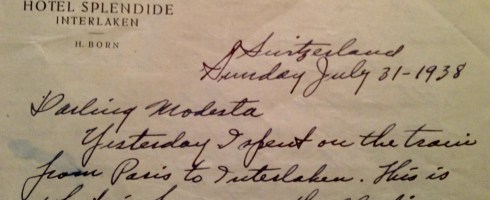 HOTEL SPLENDIDE
INTERLAKEN
H. BORN
Switzerland
Sunday July 31-1938
Darling Modesta
Yesterday I spent on the train
from Paris to Interlaken. This is